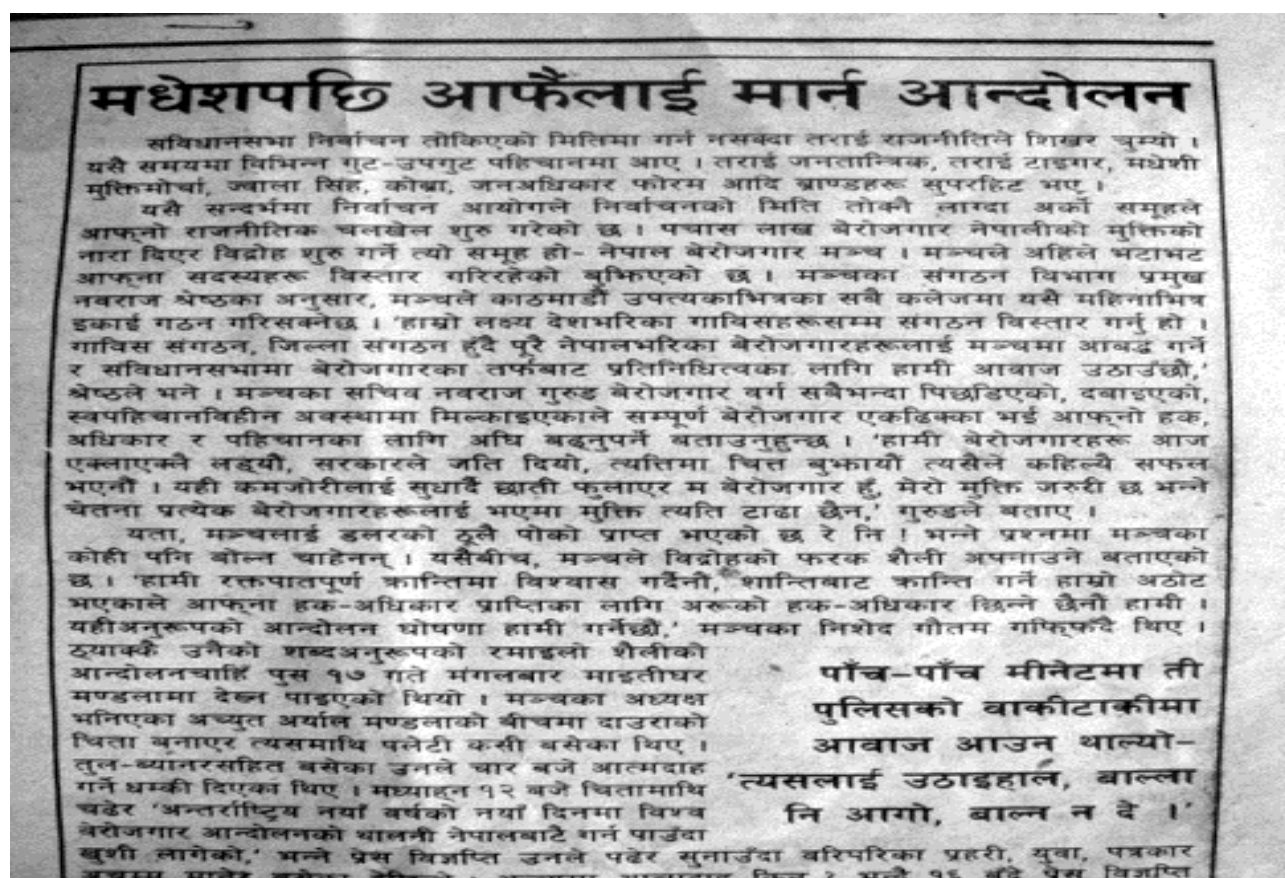 मधेशपछि आफैंलाई मार्न आन्दोलन
संविधानसभा निर्वाचन तोकिएको मितिमा गर्न नसक्दा तराई राजनीतिले शिखर चुम्यो ।
यसै समयमा विभिन्न गुट-उपगुट पहिचानमा आए । तराई जनतान्त्रिक, तराई टाइगर, मधेशी
मुक्तिमोर्चा, ज्वाला सिंह, कोब्रा, जनअधिकार फोरम आदि ब्राण्डहरू सुपरहिट भए ।
यसै सन्दर्भमा निर्वाचन आयोगले निर्वाचनको मिति तोक्नै लाग्दा अर्को समूहले
आफ्नो राजनीतिक चलखेल शुरु गरेको छ । पचास लाख बेरोजगार नेपालीको मुक्तिको
नारा दिएर विद्रोह शुरु गर्ने त्यो समूह हो- नेपाल बेरोजगार मञ्च । मञ्चले अहिले भटाभट
आफ्ना सदस्यहरू विस्तार गरिरहेको बुझिएको छ । मञ्चका संगठन विभाग प्रमुख
नवराज श्रेष्ठका अनुसार, मञ्चले काठमाडौं उपत्यकाभित्रका सबै कलेजमा यसै महिनाभित्र
इकाई गठन गरिसक्नेछ । 'हाम्रो लक्ष्य देशभरिका गाविसहरूसम्म संगठन विस्तार गर्नु हो ।
गाविस संगठन, जिल्ला संगठन हुँदै पूरै नेपालभरिका बेरोजगारहरूलाई मञ्चमा आबद्ध गर्ने
र संविधानसभामा बेरोजगारका तर्फबाट प्रतिनिधित्वका लागि हामी आवाज उठाउँछौं,'
श्रेष्ठले भने । मञ्चका सचिव नवराज गुरुङ बेरोजगार वर्ग सबैभन्दा पिछडिएको, दबाइएको,
स्वपहिचानविहीन अवस्थामा मिल्काइएकाले सम्पूर्ण बेरोजगार एकढिक्का भई आफ्नो हक,
अधिकार र पहिचानका लागि अघि बढ्नुपर्ने बताउनुहुन्छ । 'हामी बेरोजगारहरू आज
एक्लाएक्लै लड्यौं, सरकारले जति दियो, त्यत्तिमा चित्त बुझायौं त्यसैले कहिल्यै सफल
भएनौं । यही कमजोरीलाई सुधार्दै छाती फुलाएर म बेरोजगार हुँ, मेरो मुक्ति जरुरी छ भन्ने
चेतना प्रत्येक बेरोजगारहरूलाई भएमा मुक्ति त्यति टाढा छैन,' गुरुङले बताए ।
यता, मञ्चलाई डलरको ठूलै पोको प्राप्त भएको छ रे नि ! भन्ने प्रश्नमा मञ्चका
कोही पनि बोल्न चाहेनन् । यसैबीच, मञ्चले विद्रोहको फरक शैली अपनाउने बताएको
छ । 'हामी रक्तपातपूर्ण क्रान्तिमा विश्वास गर्दैनौं, शान्तिबाट क्रान्ति गर्ने हाम्रो अठोट
भएकाले आफ्ना हक-अधिकार प्राप्तिका लागि अरूको हक-अधिकार छिन्ने छैनौं हामी ।
यहीअनुरूपको आन्दोलन घोषणा हामी गर्नेछौं,' मञ्चका निशेद गौतम गफिफ्दै थिए ।
ठ्याक्कै उनैको शब्दअनुरूपको रमाइलो शैलीको
आन्दोलनचाहिँ पुस १७ गते मंगलबार माइतीघर
मण्डलामा देख्न पाइएको थियो । मञ्चका अध्यक्ष
भनिएका अच्युत अर्याल मण्डलाको बीचमा दाउराको
चिता बनाएर त्यसमाथि पलेटी कसी बसेका थिए ।
तुल-ब्यानरसहित बसेका उनले चार बजे आत्मदाह
गर्ने धम्की दिएका थिए । मध्याह्न १२ बजे चितामाथि
चढेर 'अन्तर्राष्ट्रिय नयाँ वर्षको नयाँ दिनमा विश्व
बेरोजगार आन्दोलनको थालनी नेपालबाटै गर्न पाउँदा
खुशी लागेको,' भन्ने प्रेस विज्ञप्ति उनले पढेर सुनाउँदा वरिपरिका प्रहरी, युवा, पत्रकार
पाँच-पाँच मीनेटमा ती
पुलिसको वाकीटाकीमा
आवाज आउन थाल्यो-
'त्यसलाई उठाइहाल, बाल्ला
नि आगो, बाल्न न दे ।'